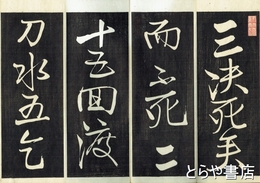 三決死矣
而不死二
十五回渡
刀水五乞
とらや書店